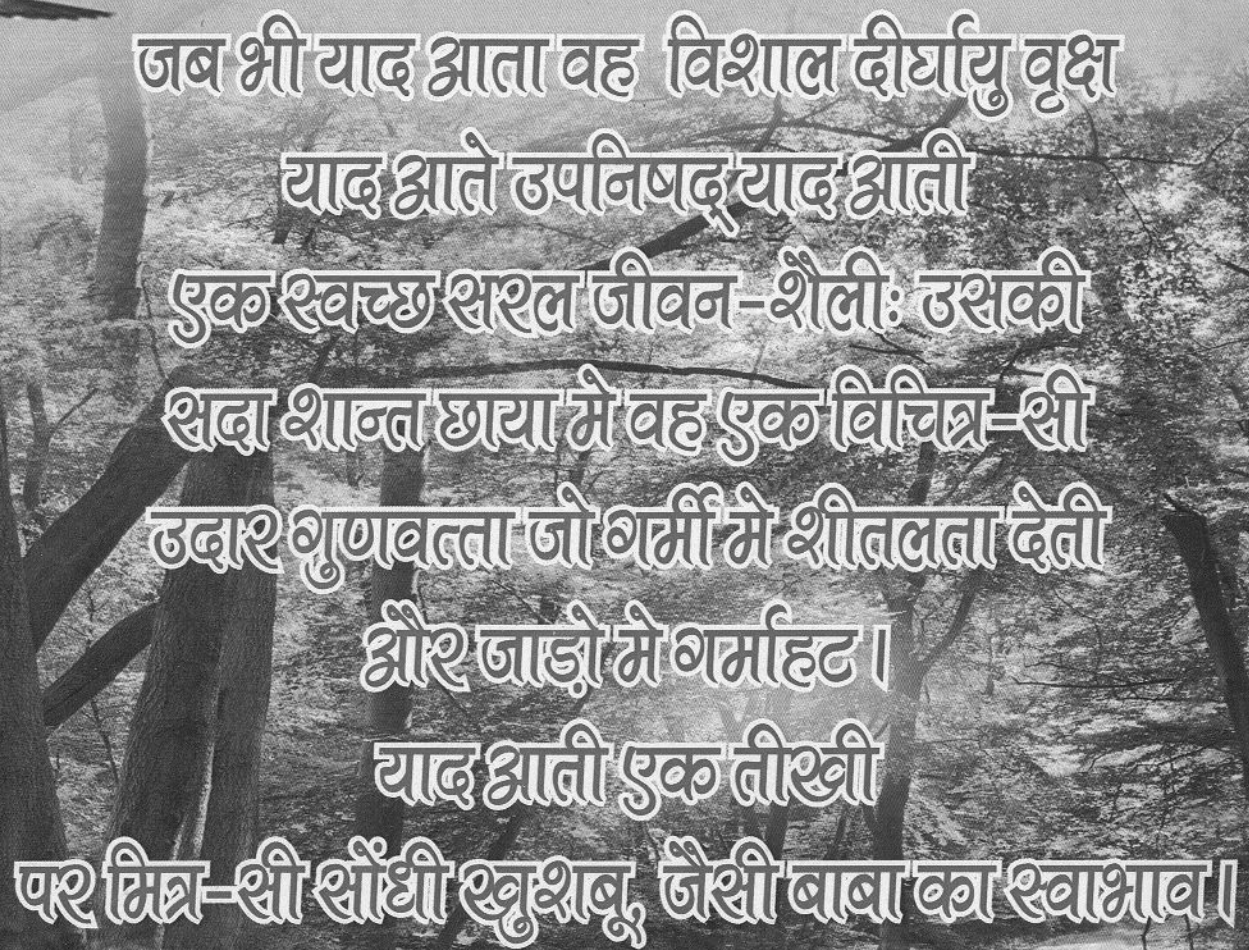 जब भी याद आता वह विशाल दीर्घायु वृक्ष
याद आते उपनिषद् याद आती
एक स्वच्छ सरल जीवन-शैलीः उसकी
सदा शान्त छाया मे वह एक विचित्र-सी
उदार गुणवत्ता जो गर्मी मे शीतलता देती
और जाड़ो मे गर्माहट।
याद आती एक तीखी
पर मित्र-सी सोंधी खुशबू, जैसी बाबा का स्वाभाव।